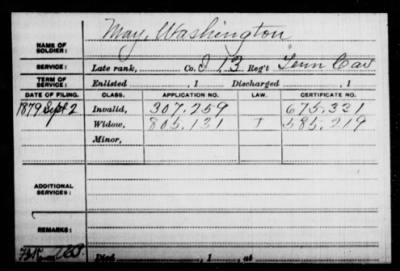 May, Washington
NAME OF SOLDIER:
SERVICE: Late rank, Co. D 13 Reg't Tenn Cav
TERM OF SERVICE: Enlisted , 1 Discharged , 1
DATE OF FILING. CLASS. APPLICATION NO. LAW. CERTIFICATE NO.
1879 Sept 2 Invalid, 307,259 675,331
Widow, 805,131 585,219
Minor,
ADDITIONAL SERVICES:
REMARKS:
Died , 1 , at